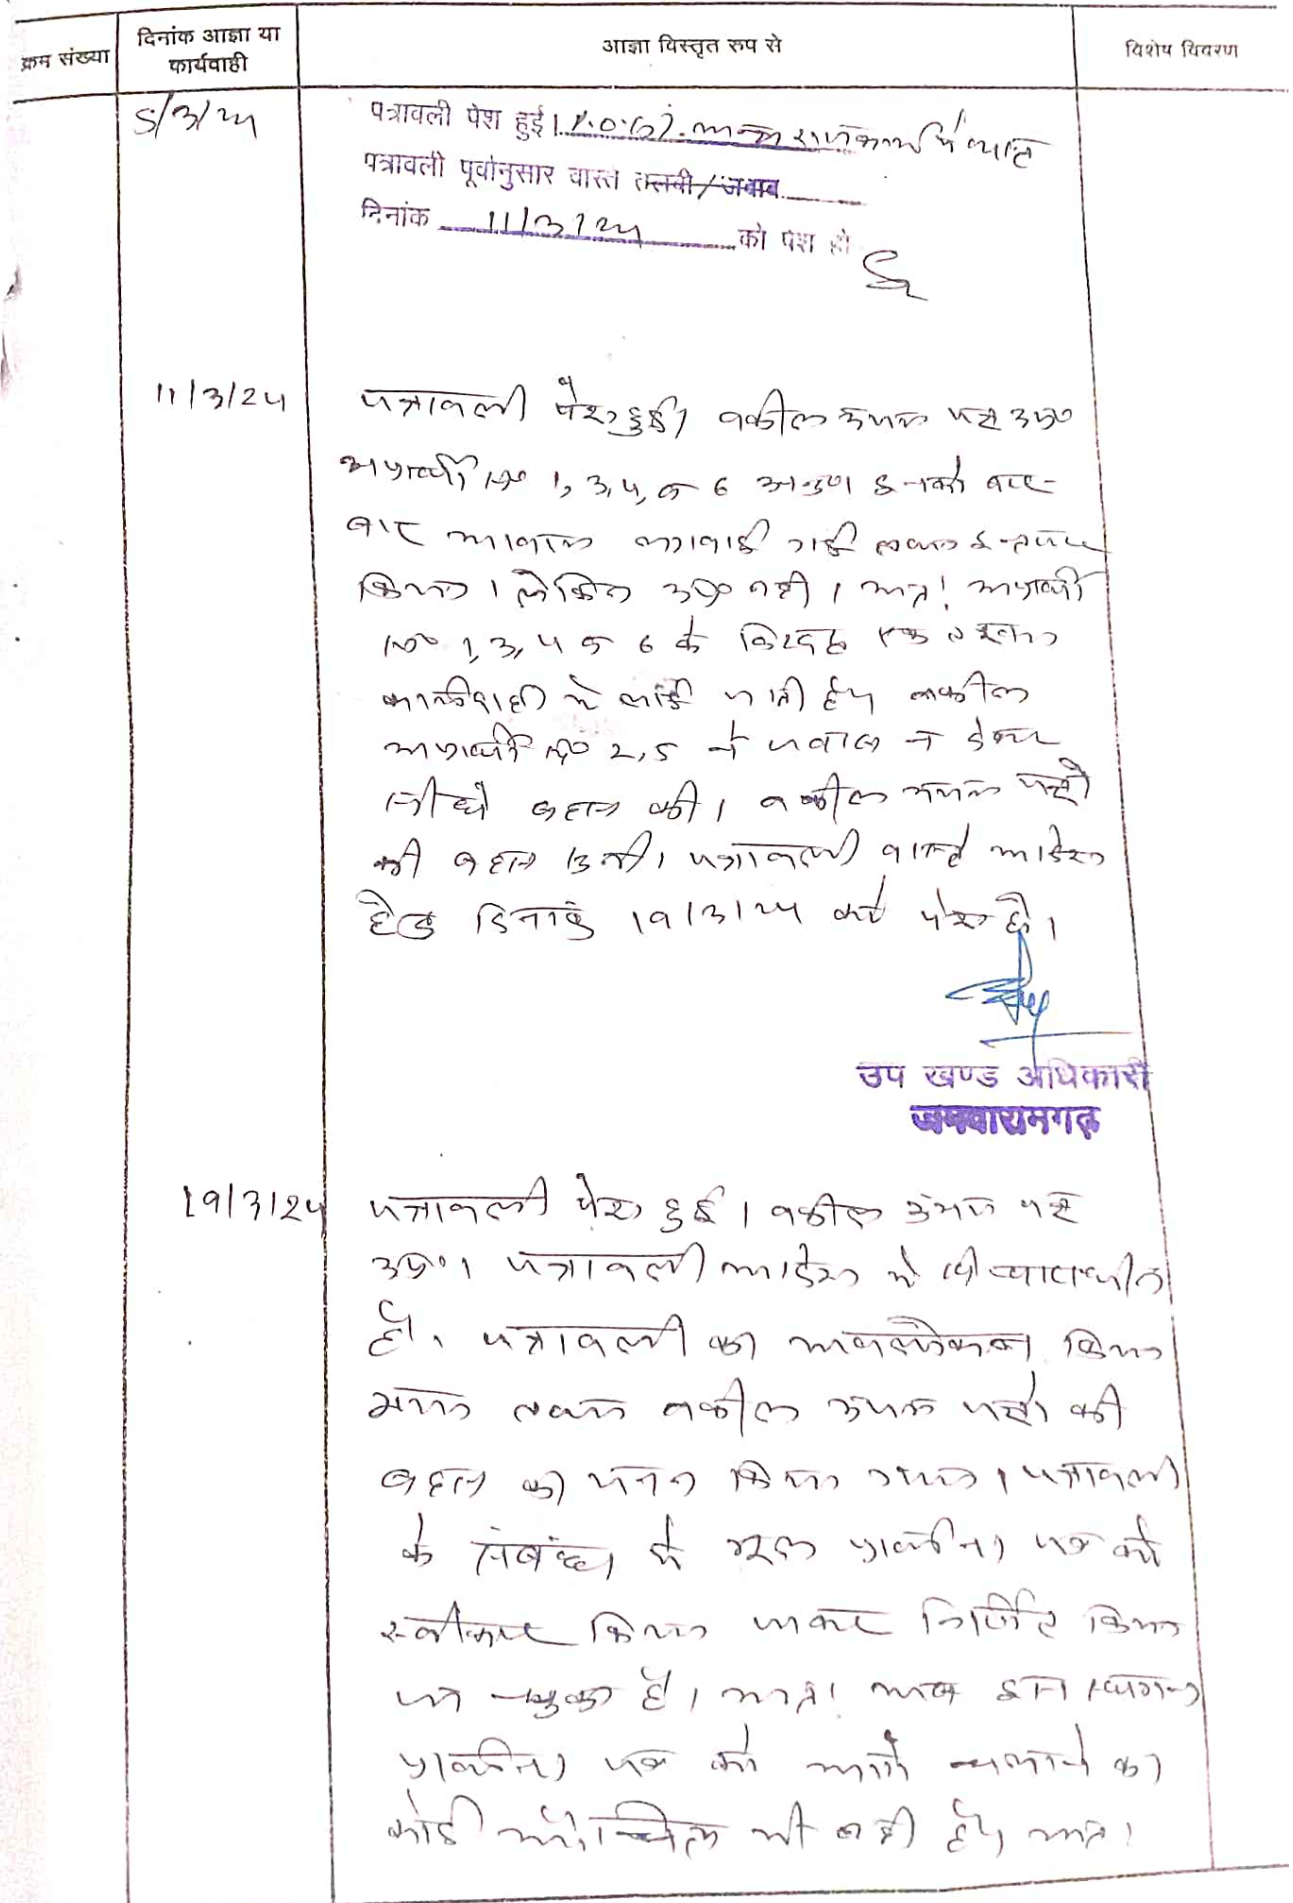 क्रम संख्या
दिनांक आज्ञा या
कार्यवाही
आज्ञा विस्तृत रुप से
विशेष विवरण
5/3/24
पत्रावली पेश हुई। P.O.(S). अन्य राजकार्य में व्यस्त
पत्रावली पूर्वानुसार वास्ते तलबी/जवाब
दिनांक 11/3/24 को पेश हो
11/3/24
पत्रावली पेश हुई। वकील उभय पक्ष उप०
अप्रार्थी न० 1, 3, 4, व 6 इनको बार-
बार आवाज लगवाई गई तथा इन्तजार
किया। लेकिन उप० नही। अतः अप्रार्थी
न० 1, 3, 4 व 6 के विरुद्ध एक तरफा
कार्यवाही में लाई जाती है। वकील
अप्रार्थी न० 2, 5 ने जवाब न देकर
सीधे बहस की। वकील उभय पक्षों
की बहस सुनी। पत्रावली वास्ते आदेश
हेतु दिनांक 19/3/24 को पेश हो।
उप खण्ड अधिकारी
जमवारामगढ़
19/3/24
पत्रावली पेश हुई। वकील उभय पक्ष
उप०। पत्रावली आदेश में विचाराधीन
है। पत्रावली का अवलोकन किया
गया तथा वकील उभय पक्षों की
बहस का मनन किया गया। पत्रावली
के संबंध में मूल प्रार्थना पत्र को
स्वीकार किया जाकर निर्णित किया
जा चुका है। अतः अब इस स्थगन
प्रार्थना पत्र को आगे चलाने का
कोई औचित्य भी नही है। अतः